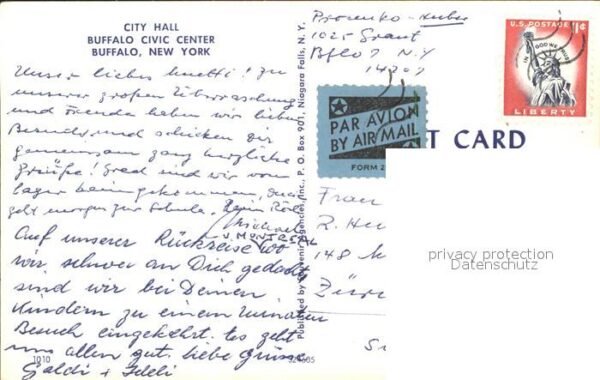 CITY HALL
BUFFALO CIVIC CENTER
BUFFALO, NEW YORK
Unser liebes Muetti! Zu
unserer großen Überraschung
und Freude haben wir lieben
Besuch und schicken dir
gemeinsam ganz herzliche
Grüße! Grad sind wir vom
Lager heimgekommen,
geht morgen zur Schule.
Michael
v. MONTREAL
Auf unserer Rückreise wo
wir schwer an Dich gedacht
sind wir bei Deinen
Kindern zu einem
Besuch eingekehrt. Es geht
uns allen gut. Liebe Grüsse
Goldi +
1010
Published by Souvenir Agencies, Inc., P.O. Box 901, Niagara Falls, N. Y.
1025 Grant
Bflo 7 N.Y
14207
U.S. POSTAGE 11¢
IN GOD WE TRUST
LIBERTY
PAR AVION
BY AIR MAIL
FORM 2
T CARD
Frau
148 M
Züri
privacy protection
Datenschutz